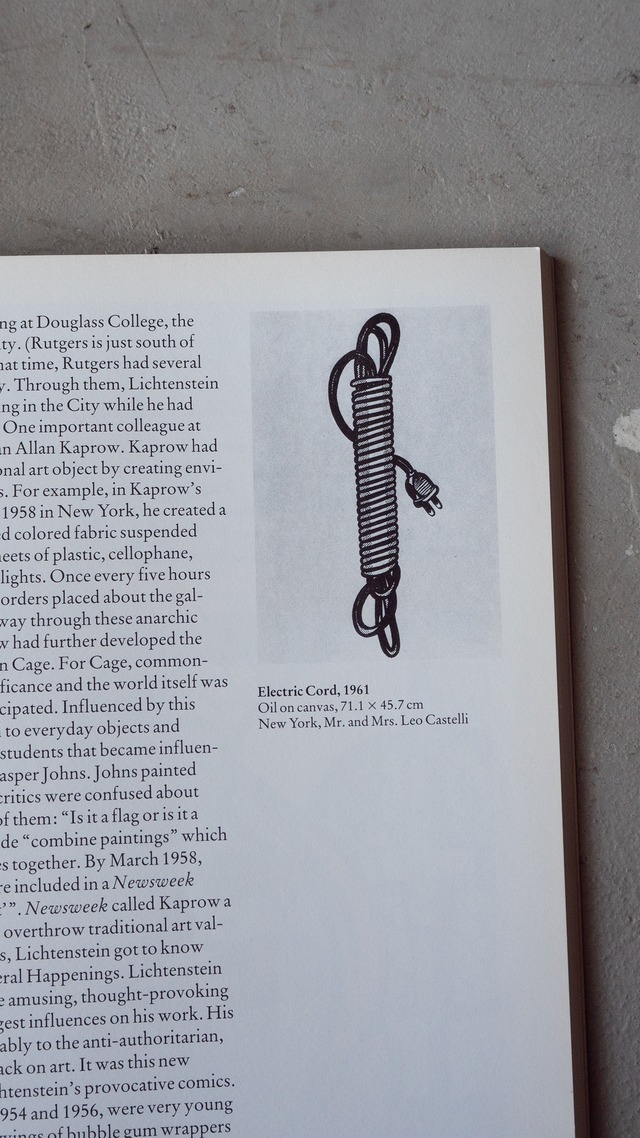 ng at Douglass College, the
ty. (Rutgers is just south of
hat time, Rutgers had several
y. Through them, Lichtenstein
ng in the City while he had
One important colleague at
an Allan Kaprow. Kaprow had
onal art object by creating envi-
s. For example, in Kaprow's
1958 in New York, he created a
ed colored fabric suspended
heets of plastic, cellophane,
lights. Once every five hours
orders placed about the gal-
way through these anarchic
w had further developed the
n Cage. For Cage, common-
ficance and the world itself was
cipated. Influenced by this
n to everyday objects and
students that became influen-
asper Johns. Johns painted
critics were confused about
of them: “Is it a flag or is it a
de “combine paintings” which
es together. By March 1958,
re included in a Newsweek
t’”. Newsweek called Kaprow a
overthrow traditional art val-
s, Lichtenstein got to know
eral Happenings. Lichtenstein
e amusing, thought-provoking
gest influences on his work. His
ably to the anti-authoritarian,
ack on art. It was this new
htenstein's provocative comics.
954 and 1956, were very young
wings of bubble gum wrappers
Electric Cord, 1961
Oil on canvas, 71.1 × 45.7 cm
New York, Mr. and Mrs. Leo Castelli